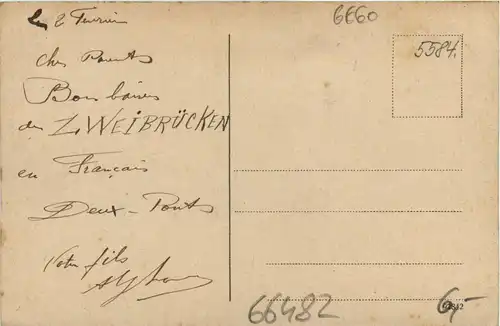 Le 2 Fevrier
6660
5584.
chers Parents
Bons baisers
de ZWEIBRÜCKEN
en Français
Deux-Ponts
Votre fils
Alphonse
66482
6,-